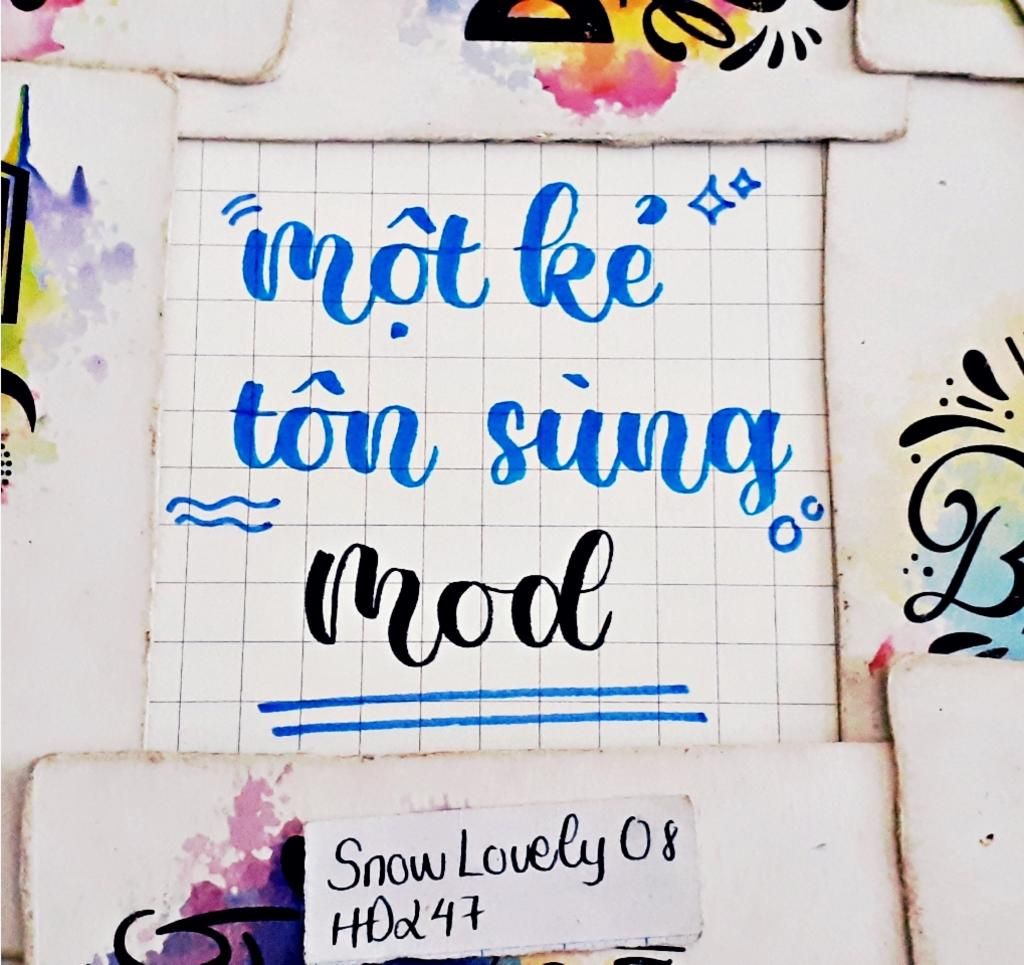 một kẻ
tôn sùng
mod
Snow Lovely 08
HD247